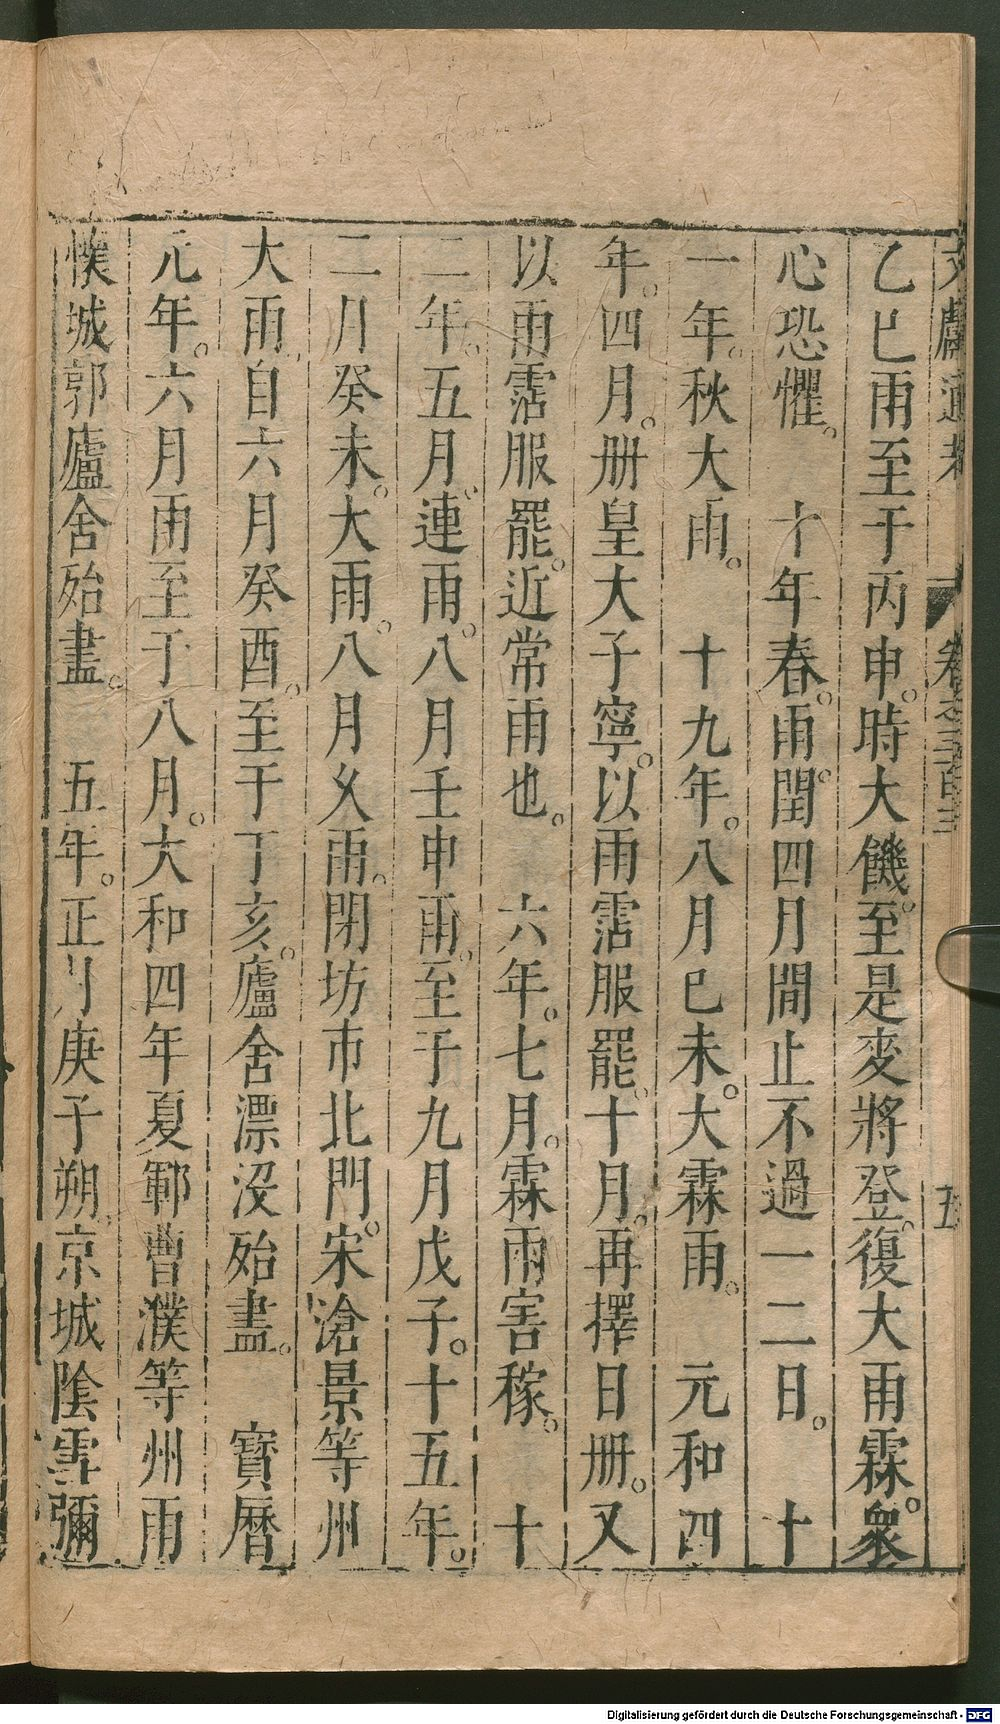 文獻通考 卷之三百三 五
乙巳雨至于丙申。時大饑。至是麥將登。復大雨霖。衆
心恐懼。 十年春。雨。閏四月間止不過一二日。 十
一年。秋大雨。 十九年。八月己未。大霖雨。 元和四
年。四月。册皇大子寧。以雨霑服罷。十月。再擇日册。又
以雨霑服罷。近常雨也。 六年。七月。霖雨害稼。 十
二年。五月。連雨。八月壬申雨。至于九月戊子。十五年。
二月癸未。大雨。八月久雨。閉坊市北門。宋滄景等州
大雨。自六月癸酉。至于丁亥。廬舍漂没殆盡。 寶曆
元年。六月雨至于八月。大和四年夏鄆曹濮等州雨
壞城郭廬舍殆盡。 五年。正月庚子朔。京城陰雪彌
Digitalisierung gefördert durch die Deutsche Forschungsgemeinschaft - DFG